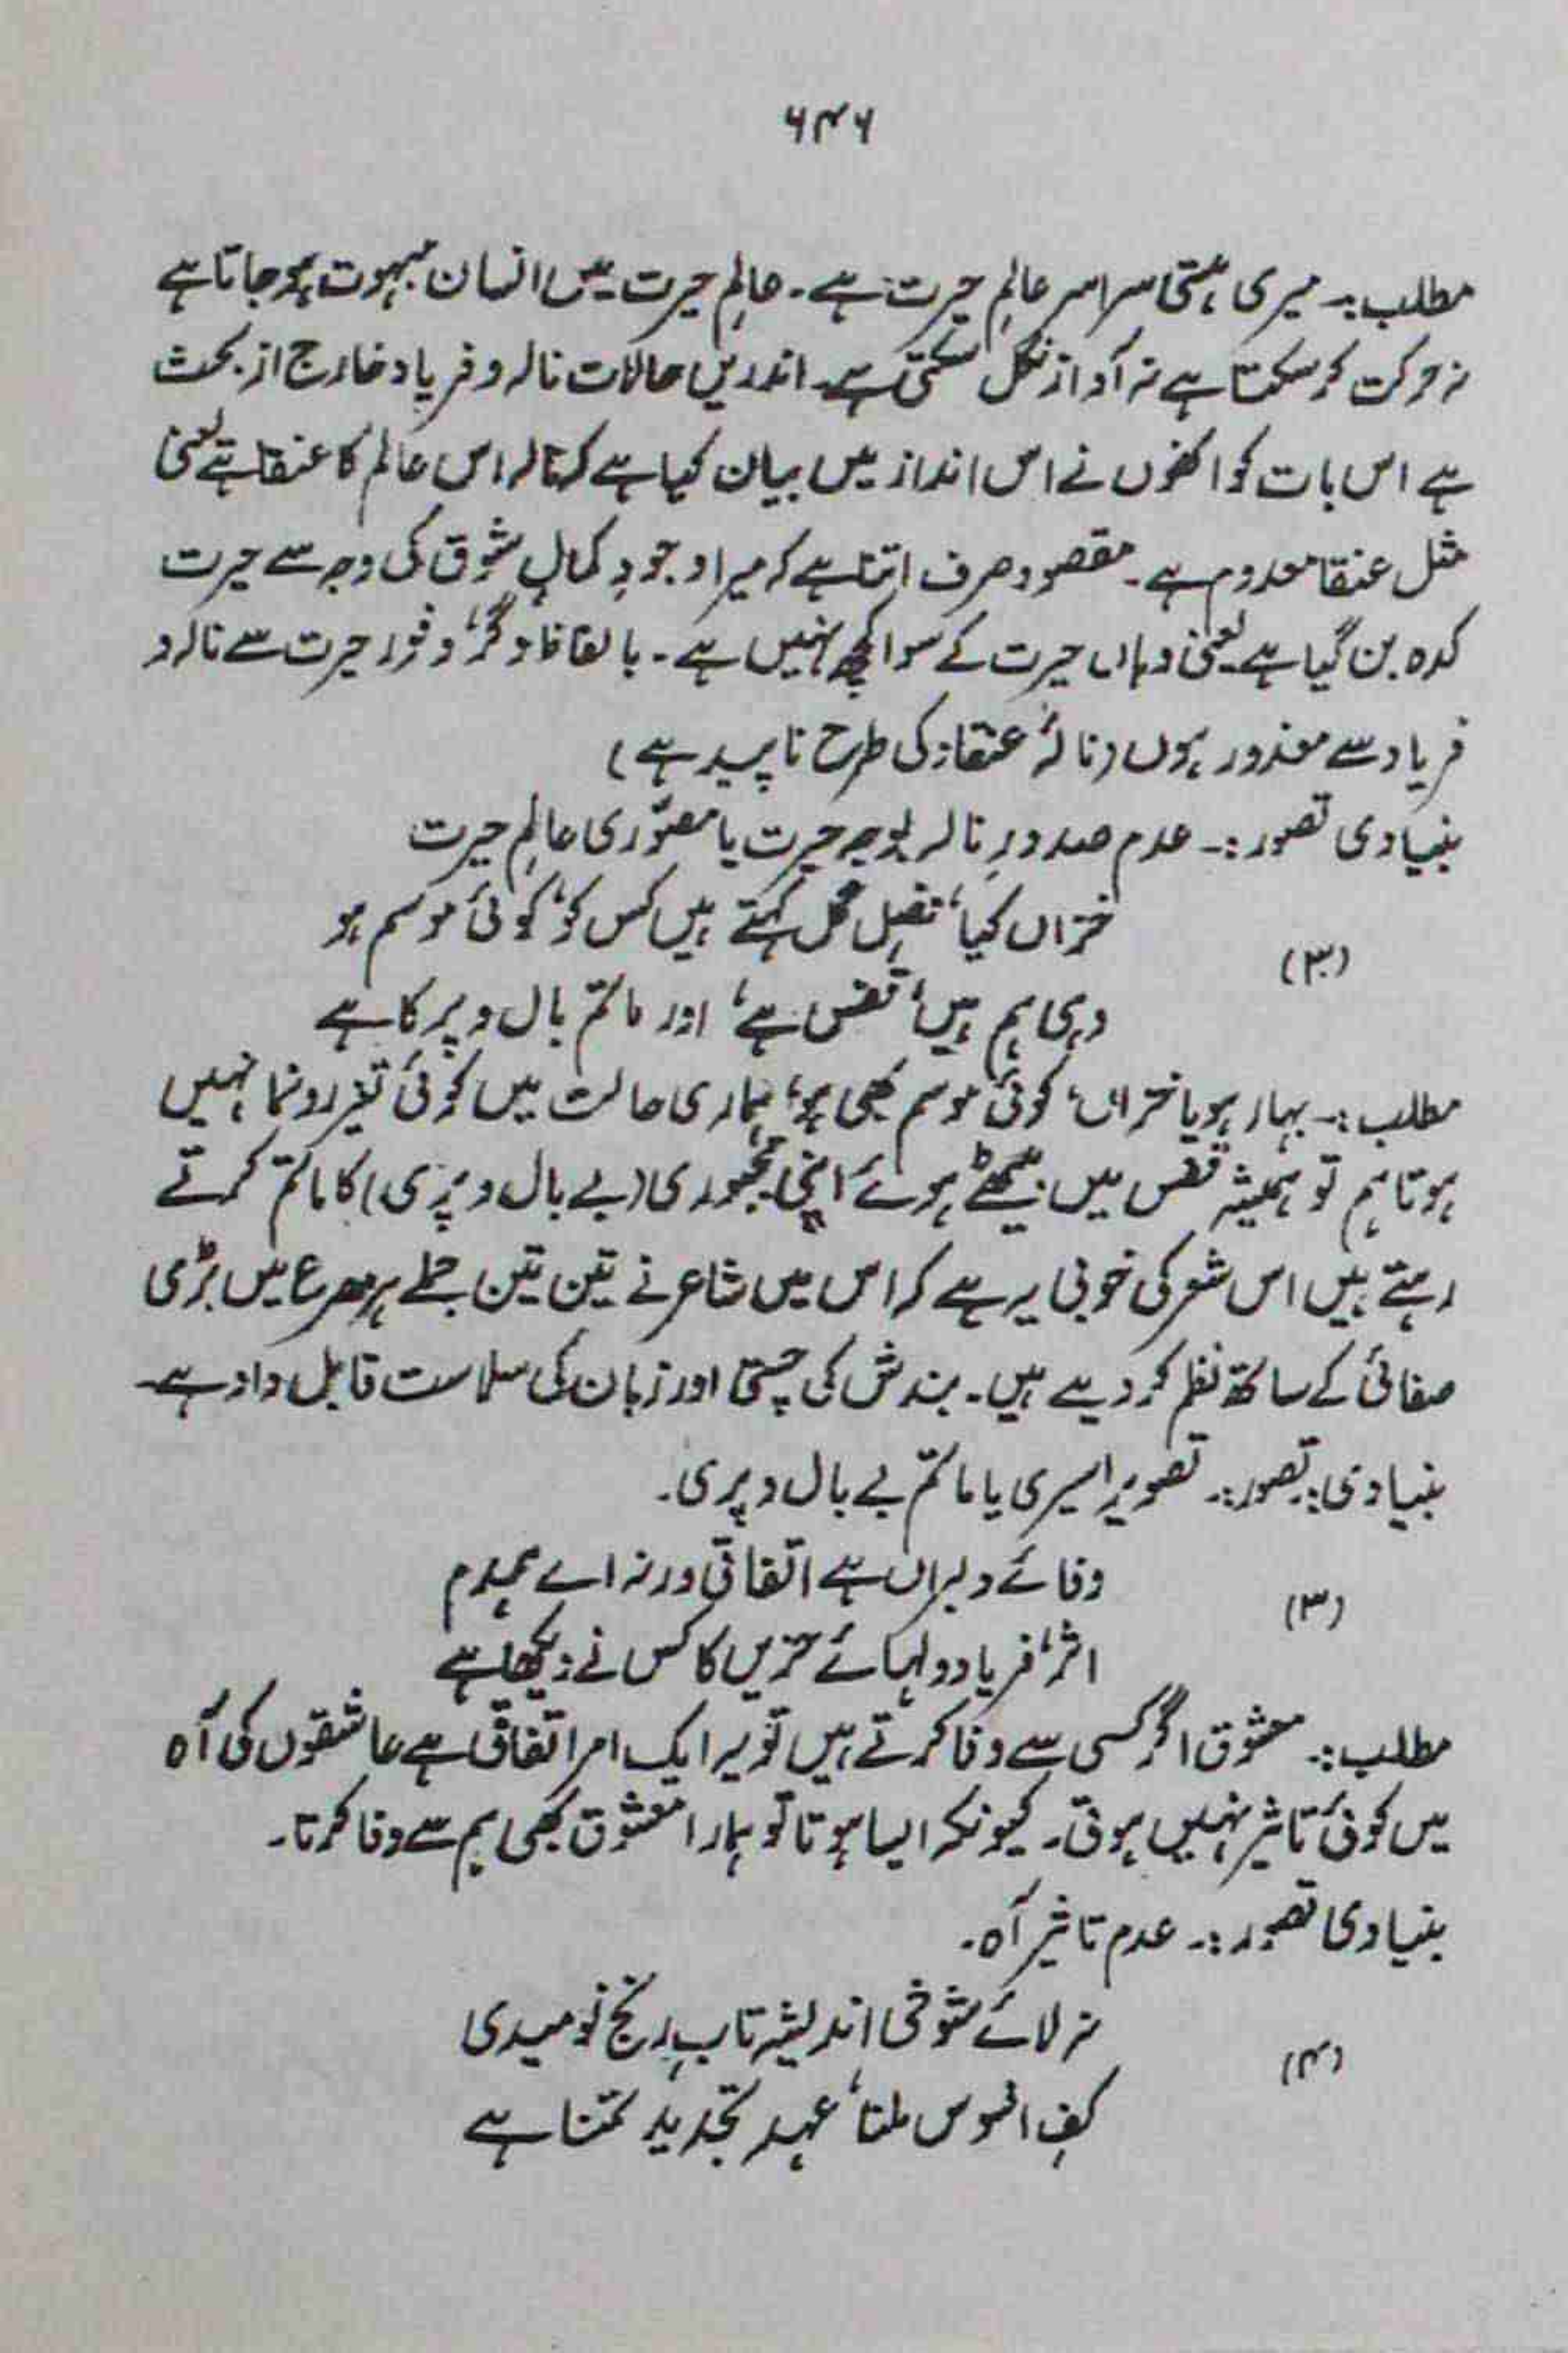 ۶۴۶
مطلب:۔ میری ہستی سراسر عالمِ حیرت ہے۔ عالمِ حیرت میں انسان مبہوت ہوجاتا ہے
نہ حرکت کرسکتا ہے نہ آواز نکل سکتی ہے۔ اندریں حالات نالہ و فریاد خارج از بحث
ہے اس بات کو انھوں نے اس انداز میں بیان کیا ہے کہ نالہ اس عالم کا عنقا ہے یعنی
مثل عنقا معدوم ہے۔ مقصود صرف اتنا ہے کہ میرا وجودِ کمالِ شوق کی وجہ سے حیرت
کدہ بن گیا ہے یعنی وہاں حیرت کے سوا کچھ نہیں ہے۔ بالفاظ دگر، وفور حیرت سے نالہ و
فریاد سے معذور ہوں (نالۂ عنقا کی طرح ناپید ہے)
بنیادی تصور:۔ عدم صدورِ نالہ بوجہ حیرت یا مصوّری عالمِ حیرت
خزاں کیا، فصلِ گل کہتے ہیں کس کو، کوئی موسم ہو
(۳)
وہی ہم ہیں، قفس ہے، اور ماتم بال و پر کا ہے
مطلب:۔ بہار ہو یا خزاں، کوئی موسم بھی ہو، ہماری حالت میں کوئی تغیر رونما نہیں
ہوتا ہم تو ہمیشہ قفس میں بیٹھے ہوئے اپنی مجبوری (بے بال و پری) کا ماتم کرتے
رہتے ہیں اس شعر کی خوبی یہ ہے کہ اس میں شاعر نے تین تین جملے ہر مصرع میں بڑی
صفائی کے ساتھ نظم کر دیے ہیں۔ بندش کی چستی اور زبان کی سلاست قابل داد ہے۔
بنیادی تصور:۔ تصویرِ اسیری یا ماتم بے بال و پری۔
وفائے دلبراں ہے اتفاقی ورنہ اے ہمدم
(۳)
اثر، فریاد دلہائے حزیں کا کس نے دیکھا ہے
مطلب:۔ معشوق اگر کسی سے وفا کرتے ہیں تو یہ ایک امر اتفاقی ہے عاشقوں کی آہ
میں کوئی تاثیر نہیں ہوتی۔ کیونکہ ایسا ہوتا تو ہمارا معشوق بھی ہم سے وفا کرتا۔
بنیادی تصور:۔ عدم تاثیر آہ۔
نہ لائے شوخی اندیشہ تابِ رنج نومیدی
(۴)
کفِ افسوس ملنا، عہد تجدید تمنا ہے